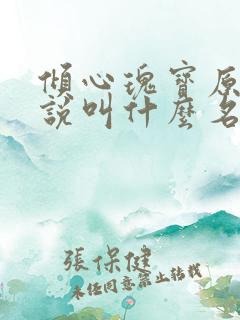 傾心瑰寶原
說叫什麼名
張保健
未任同意禁止轉載